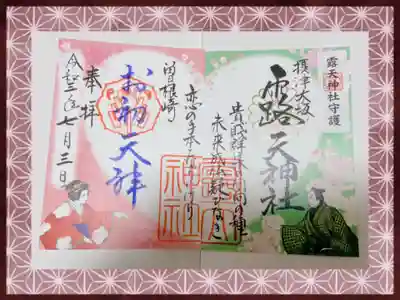 露天神社守護
摂津大坂
露天神社
貴賎群集の回向の種
未来成仏疑ひなき
恋の手本となりにけり
曽根崎
お初天神
奉拝
令和三年七月三日